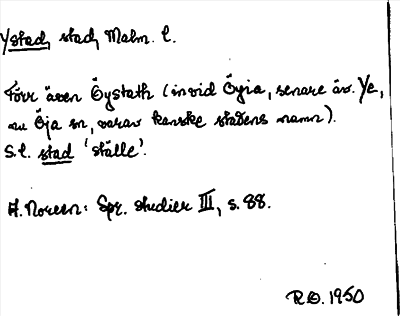 Ystad, stad, Malm. l.
Förr även Öystath (invid Öyia, senare äv. Ye,
nu Öja sn, varav kanske stadens namn).
S.l. stad 'ställe'.
A. Noreen: Spr. studier III, s. 88.
R.O. 1950